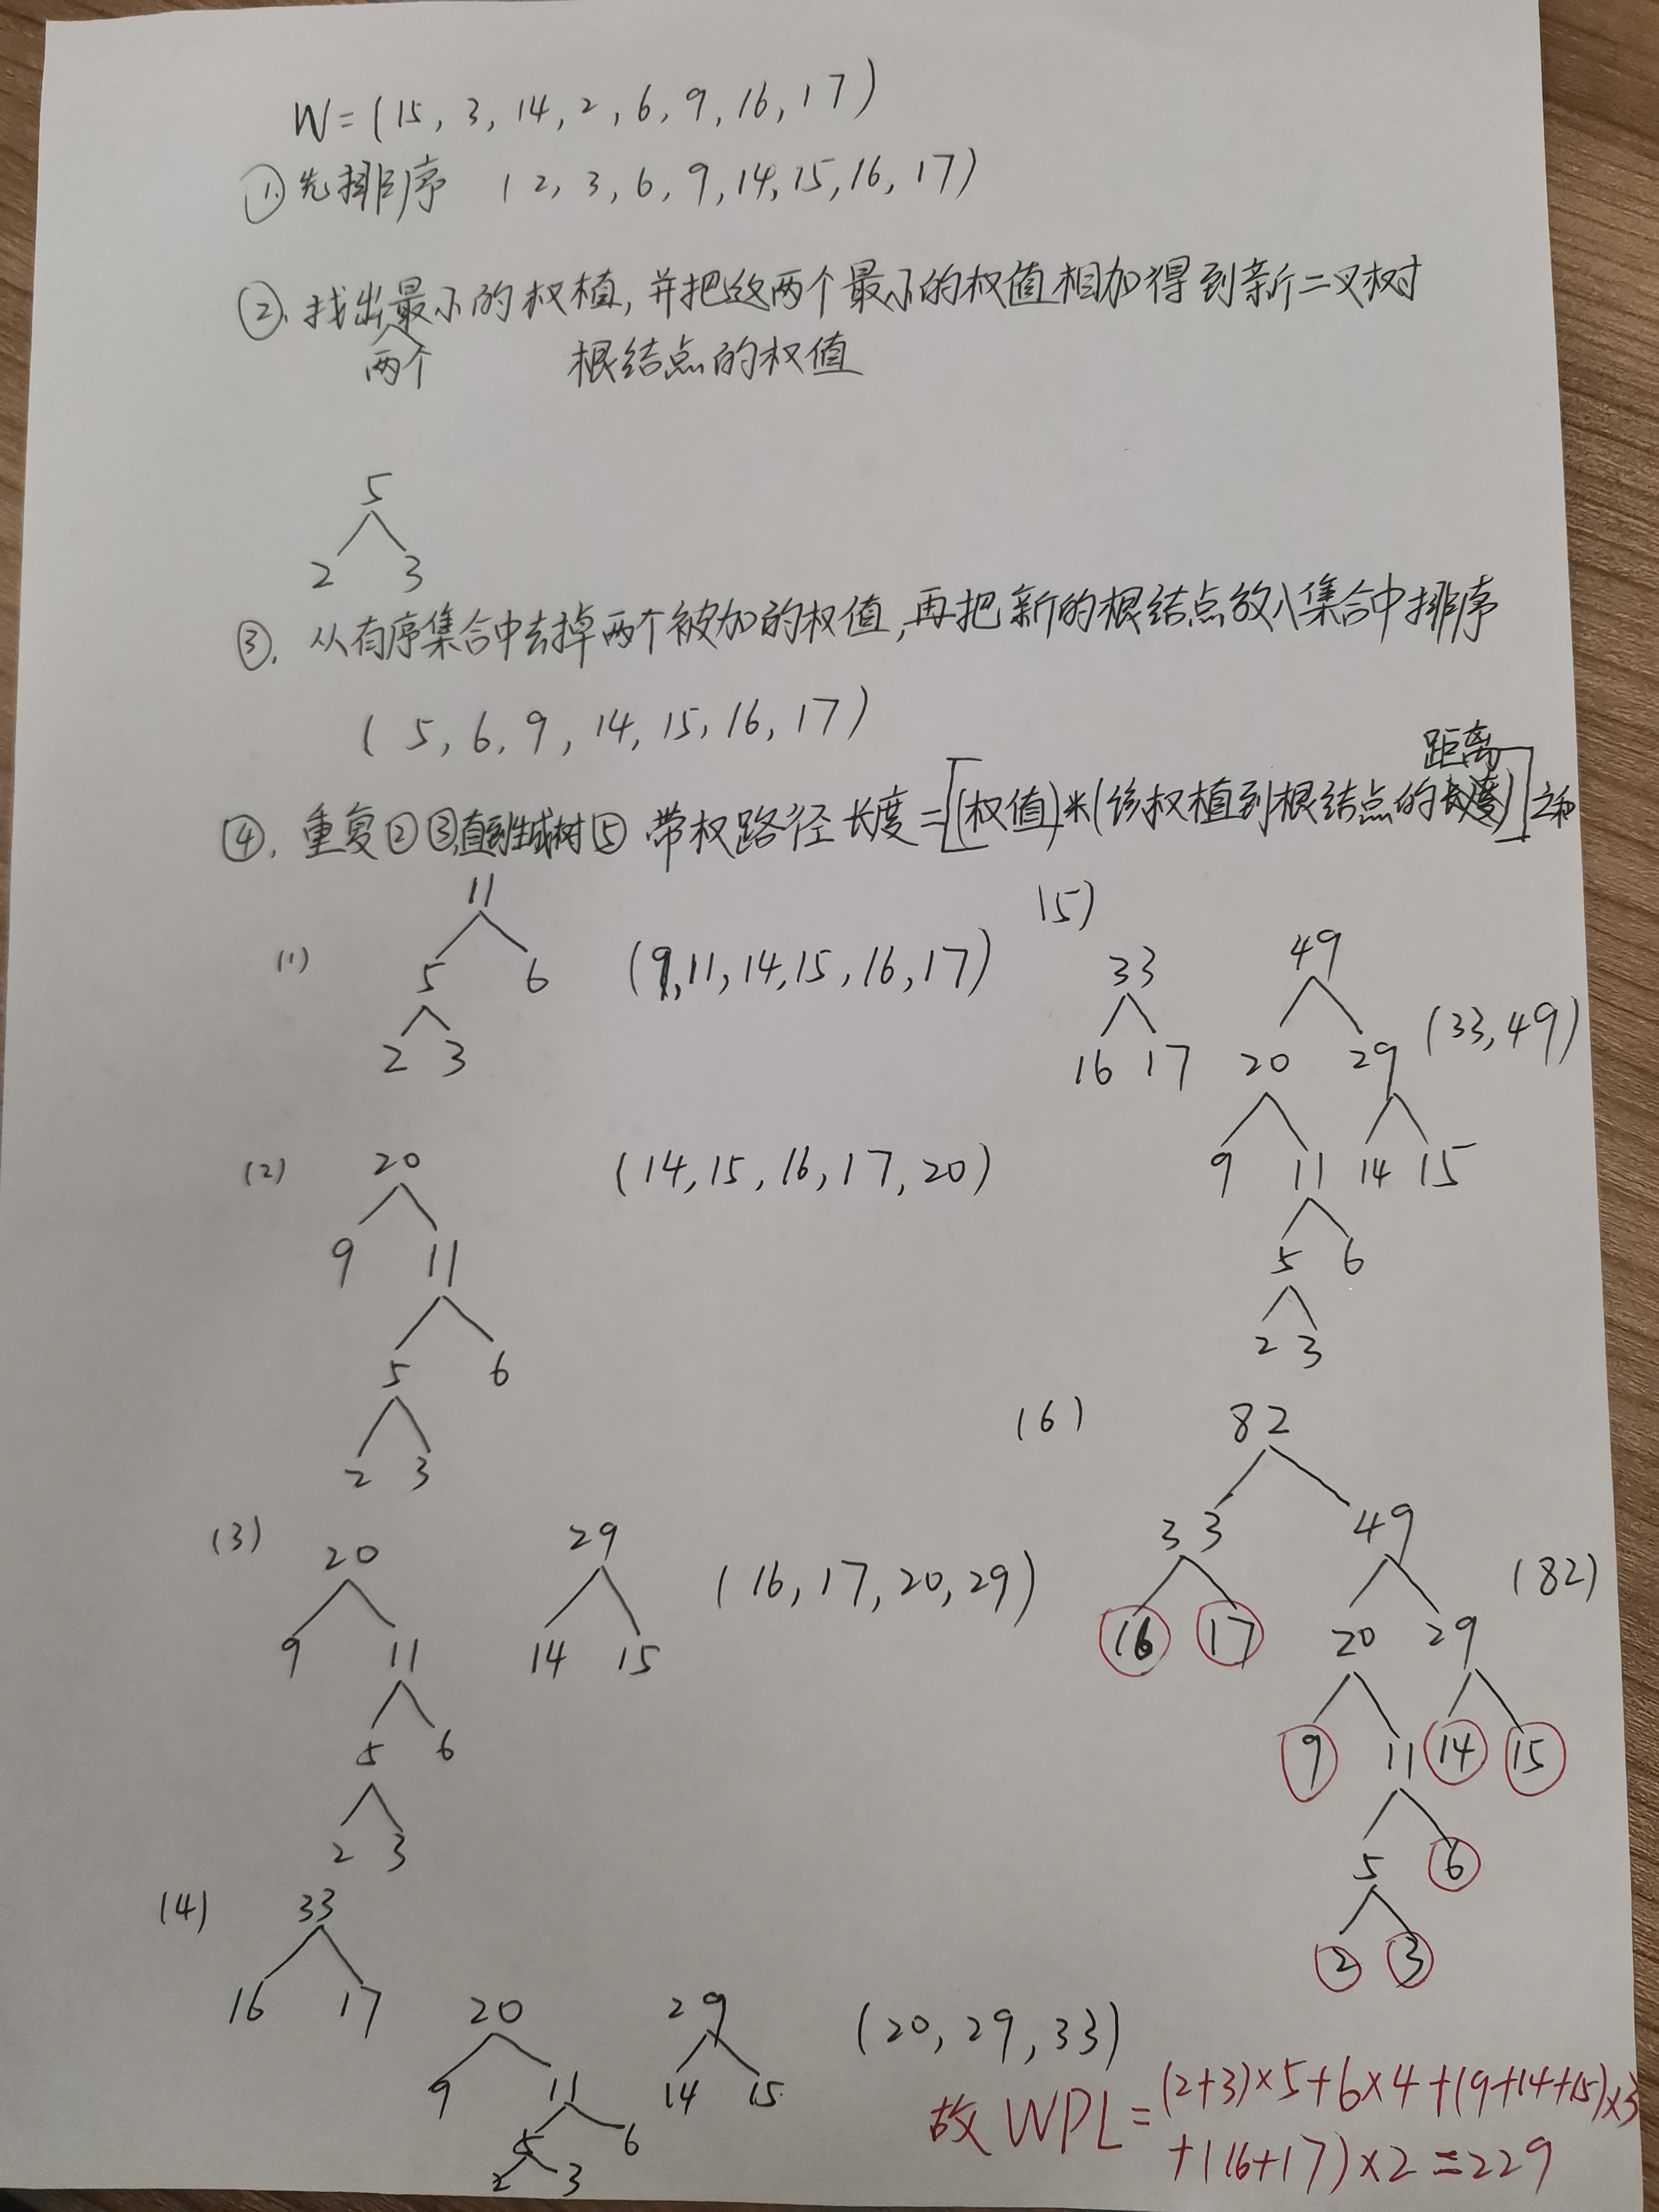 W=(15,3,14,2,6,9,16,17)
①先排序 (2,3,6,9,14,15,16,17)
②.找出最小的权植,并把这两个最小的权值相加得到新二叉树
两个 根结点的权值
5
2 3
③.从有序集合中去掉两个被加的权值,再把新的根结点放入集合中排序
(5,6,9,14,15,16,17)
距离
④.重复②③,直到生成树⑤带权路径长度=[(权值)*(该权植到根结点的长度)]之和
(1)
11
5 6
2 3
(9,11,14,15,16,17)
(2)
20
9 11
5 6
2 3
(14,15,16,17,20)
(3)
20 29
9 11 14 15
5 6
2 3
(16,17,20,29)
(4)
33
16 17
20 29
9 11 14 15
5 6
2 3
(20,29,33)
(5)
33 49
16 17 20 29
9 11 14 15
5 6
2 3
(33,49)
(6)
82
33 49
16 17 20 29
9 11 14 15
5 6
2 3
(82)
故WPL=(2+3)×5+6×4+(9+14+15)×3
+(16+17)×2=229